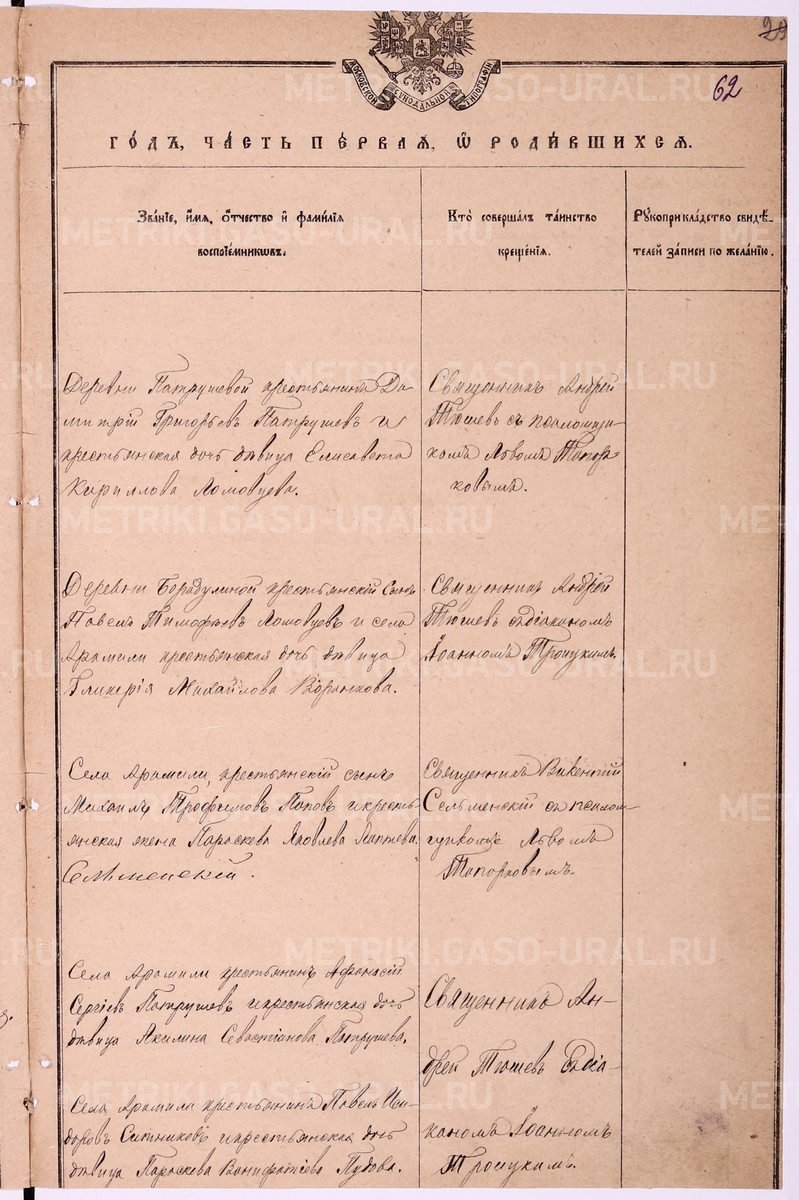 МОСКОВСКОЙ СУНОДАЛЬНОЙ ТИПОГРАФІИ
29
62
ГОДЪ, ЧАСТЬ ПЕРВАЯ, Ѡ РОДИВШИХСЯ.
Званіе, имя, отчество и фамилія
воспріемниковъ.
Кто совершалъ таинство
крещенія.
Рукоприкладство свидѣ-
телей записи по желанію.
Деревни Патрушевой крестьянинъ Ди-
митрій Григорьевъ Патрушевъ и
крестьянская дочь дѣвица Елисавета
Кириллова Ломовцева.
Священникъ Андрей
Тюшевъ съ псаломщи-
комъ Львомъ Топор-
ковымъ.
Деревни Бородулиной крестьянскій сынъ
Павелъ Тимофѣевъ Ломовцевъ и села
Арамили крестьянская дочь дѣвица
Гликерія Михайлова
Священникъ Андрей
Тюшевъ съ діакономъ
Іоанномъ Троицкимъ.
Села Арамили, крестьянскій сынъ
Михаилъ Трофимовъ Поповъ и кресть-
янская жена Параскева Яковлева
Священникъ Викентій
Сельменскій съ псалом-
щикомъ Львомъ
Топорковымъ.
Села Арамили крестьянинъ Афанасій
Сергіевъ Патрушевъ и крестьянская дочь
дѣвица Акилина Севастіанова Патрушева.
Священникъ Ан-
дрей Тюшевъ съ діа-
кономъ Іоанномъ
Троицкимъ.
Села Арамили крестьянинъ Павелъ Иси-
доровъ Ситниковъ и крестьянская дочь
дѣвица Параскева Вонифатіева Пудова.
METRIKI.GASO-URAL.RU